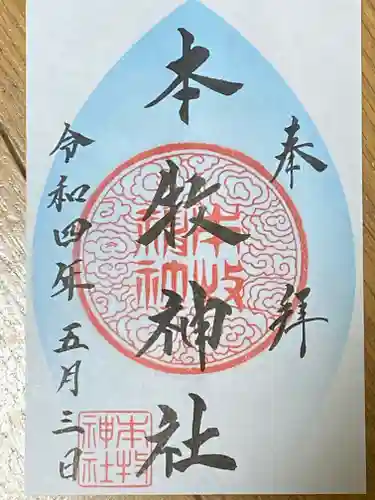 奉拝
本牧神社
令和四年五月三日
本牧
神社
本牧
神社